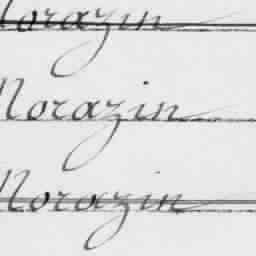 Norazin
Norazin
Norazin